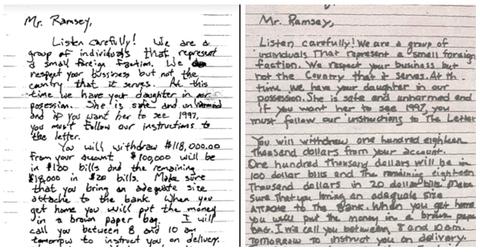 Mr. Ramsey,
Listen carefully! We are a
group of individuals that represent
a small foreign faction. We
respect your bussiness but not the
country that it serves. At this
time we have your daughter in our
posession. She is safe and unharmed
and if you want her to see 1997,
you must follow our instructions to
the letter.
You will withdraw $118,000.00
from your account. $100,000 will be
in $100 bills and the remaining
$18,000 in $20 bills. Make sure
that you bring an adequate size
attache to the bank. When you
get home you will put the money
in a brown paper bag. I will
call you between 8 and 10 am
tomorrow to instruct you on delivery.
Mr. Ramsey,
Listen carefully! We are a group of
individuals that represent a small foreign
faction. We respect your business but
not the country that it serves. At th
time we have your daughter in our
possession. She is safe and unharmed and
if you want her to see 1997, you
must follow our instructions to the letter
You will withdraw one hundred eighteen
thousand dollars from your account.
One hundred thousand dollars will be in
100 dollar bills and the remaining eighteen
thousand dollars in 20 dollar bills. Make
sure that you bring an adequate size
attache to the bank. When you get home
you will put the money in a brown paper
bag. I will call you between 8 and 10 am.
tomorrow to instruct you on delivery.